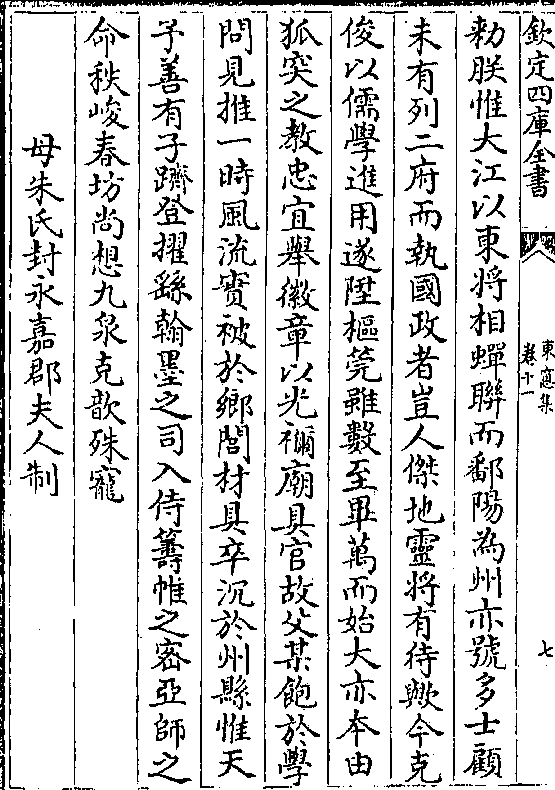 欽定四庫全書
東窻集
卷十一
七
勅朕惟大江以東將相蟬聯而鄱陽為州亦號多士顧
未有列二府而執國政者豈人傑地靈將有待歟今克
俊以儒學進用遂陞樞筦雖數至畢萬而始大亦本由
狐突之教忠宜舉徽章以光禰廟具官故父某飽於學
問見推一時風流實被於鄉閭材具卒沉於州縣惟天
予善有子躋登擢繇翰墨之司入侍籌帷之宻亞師之
命秩峻春坊尚想九泉克歆殊寵
母朱氏封永嘉郡夫人制